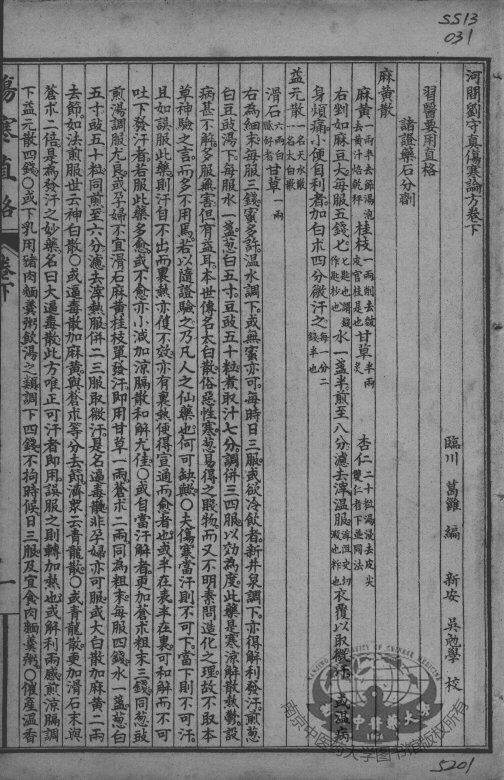 SS13
031
河間劉守真傷寒論方卷下
臨川 葛雍 編 新安 吳勉學 校
習醫要用直格
諸證藥石分劑
麻黃散
麻黃 一兩半去節湯泡去黃汁焙乾秤 桂枝 一兩削去皴皮官桂是也 甘草 半兩 杏仁 二十粒湯浸去皮尖雙仁者下並同法
右剉如麻豆大每服五錢匕 水一盞半煎至八分濾去滓溫服 衣覆以取微汗 或溫病
身煩痛小便自利者加白朮四分微汗之 每一分二錢半也
益元散 一名天水散一名太白散
滑石 六兩白膩好者 甘草 一兩
右為細末每服三錢蜜少許溫水調下或無蜜亦可每時日三服或欲冷飲者新井泉調下亦得解利發汗煎葱
白豆豉湯下每服水一盞葱白五寸豆豉五十粒煮取汁七分調併三四服以効為度此藥是寒涼解散熱鬱設
病甚不解多服無害但有益耳本世傳名太白散俗惡性寒葱易得之賤物而又不明素問造化之理故不取本
草神驗之言而多不用焉若以隨證驗之乃凡人之仙藥也何可缺歟夫傷寒當汗則不可下當下則不可汗
且如誤服此藥則汗自不出而裏熱亦獲不效亦有裏熱便得宣通而愈者也或半在表半在裏可和解而不可
吐下發汗者若服此藥多愈或不愈亦小減加涼膈散和解尤佳或自當汗解者更加蒼朮末三錢同葱豉
煎湯調服尤良或孕婦不宜滑石麻黃桂枝單發汗即用甘草一兩蒼朮二兩同為粗末每服四錢水一盞葱白
五寸豉五十粒同煎至六分濾去滓熱服併二三服取微汗是名逼毒散非孕婦亦可服或大白散加麻黃二兩
去節如法煎服世云神白散或逼毒散加麻黃與蒼朮等分去節濟衆云青龍散或青龍散更加滑石末與
蒼朮二倍是為發汗之妙藥名曰大逼毒散此方唯正可汗者即用誤服之則轉加熱也或解利兩感煎涼膈調
下益元散四錢或下乳用豬肉麵羹粥飲湯之類調下四錢不拘時候日三服及宜食肉麵羹粥催産溫香
傷寒直格 卷下 一
南京中医药大学图书馆版权所有
5201